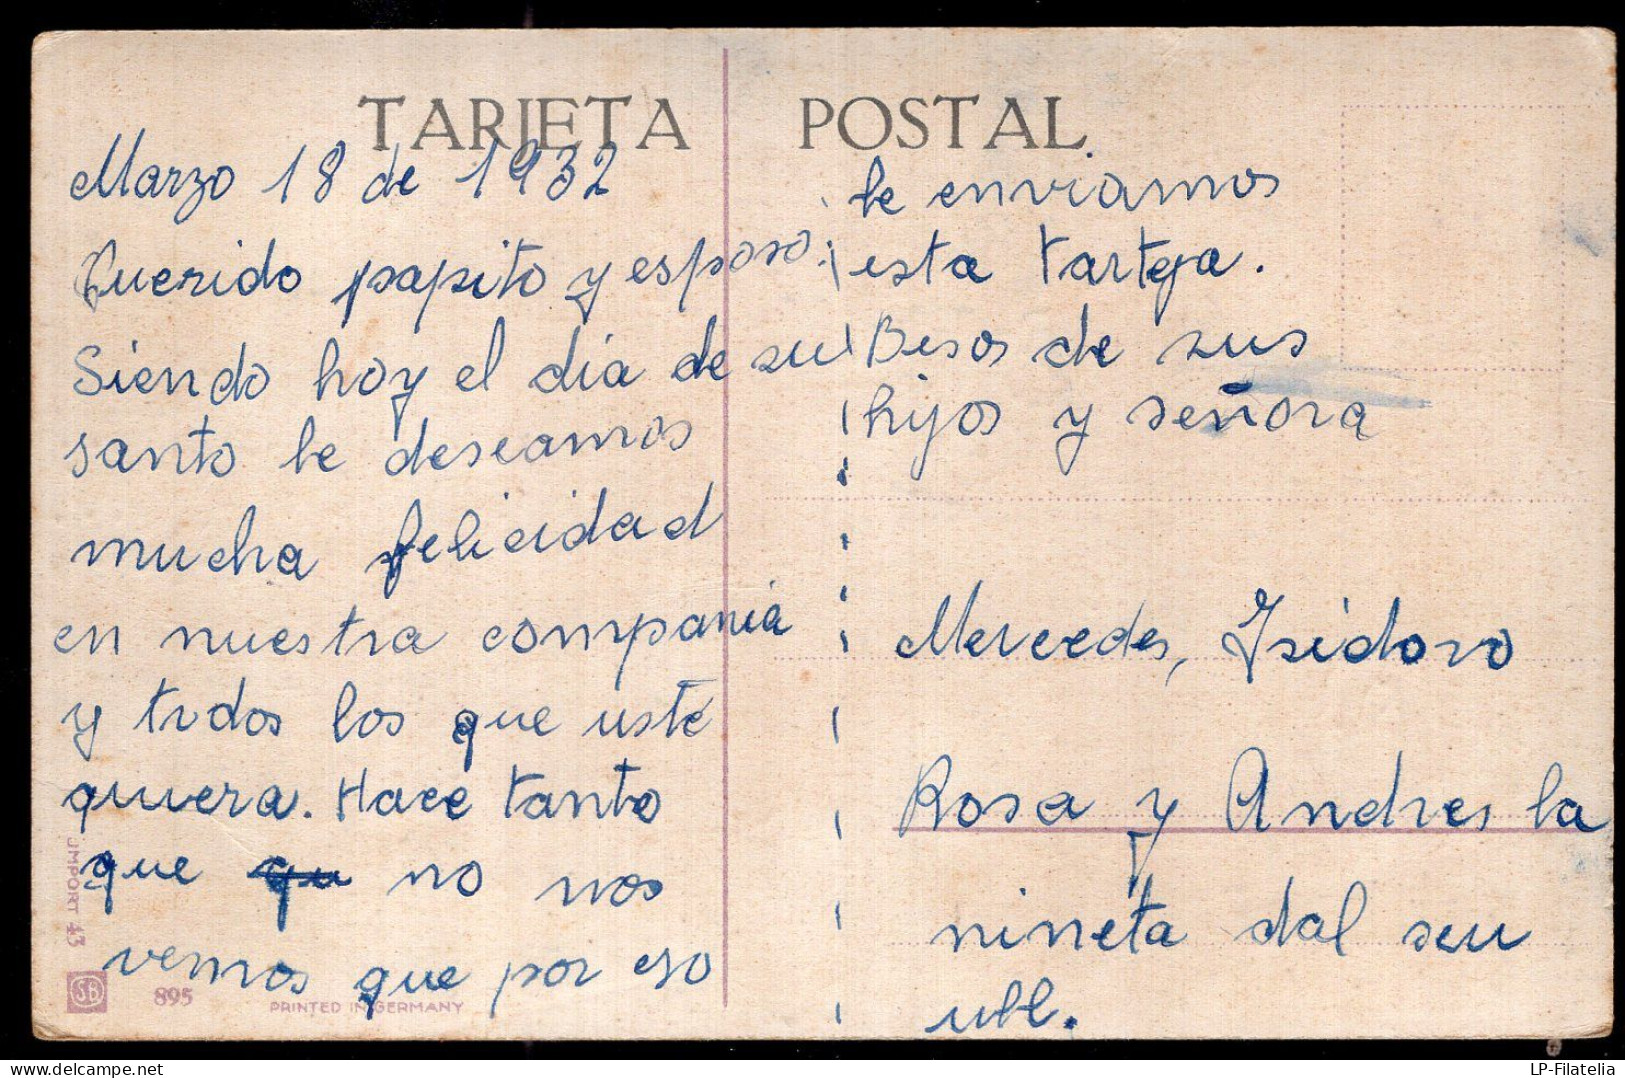 TARJETA POSTAL
Marzo 18 de 1932
Querido papito y esposo:
Siendo hoy el dia de su
santo le deseamos
mucha felicidad
en nuestra compania
y todos los que usté
quiera. Hace tanto
que qu no nos
vemos que por eso
le enviamos
esta tartega.
Besos de sus
hijos y señora
Mercedes, Isidoro
Rosa y Andres la
nineta dal seu
ull.
JMPORT 43
SB 895 PRINTED IN GERMANY
LP-Filatelia